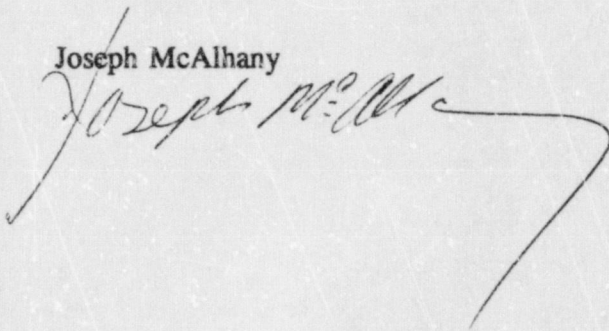 Joseph McAlhany
Joseph McAlha